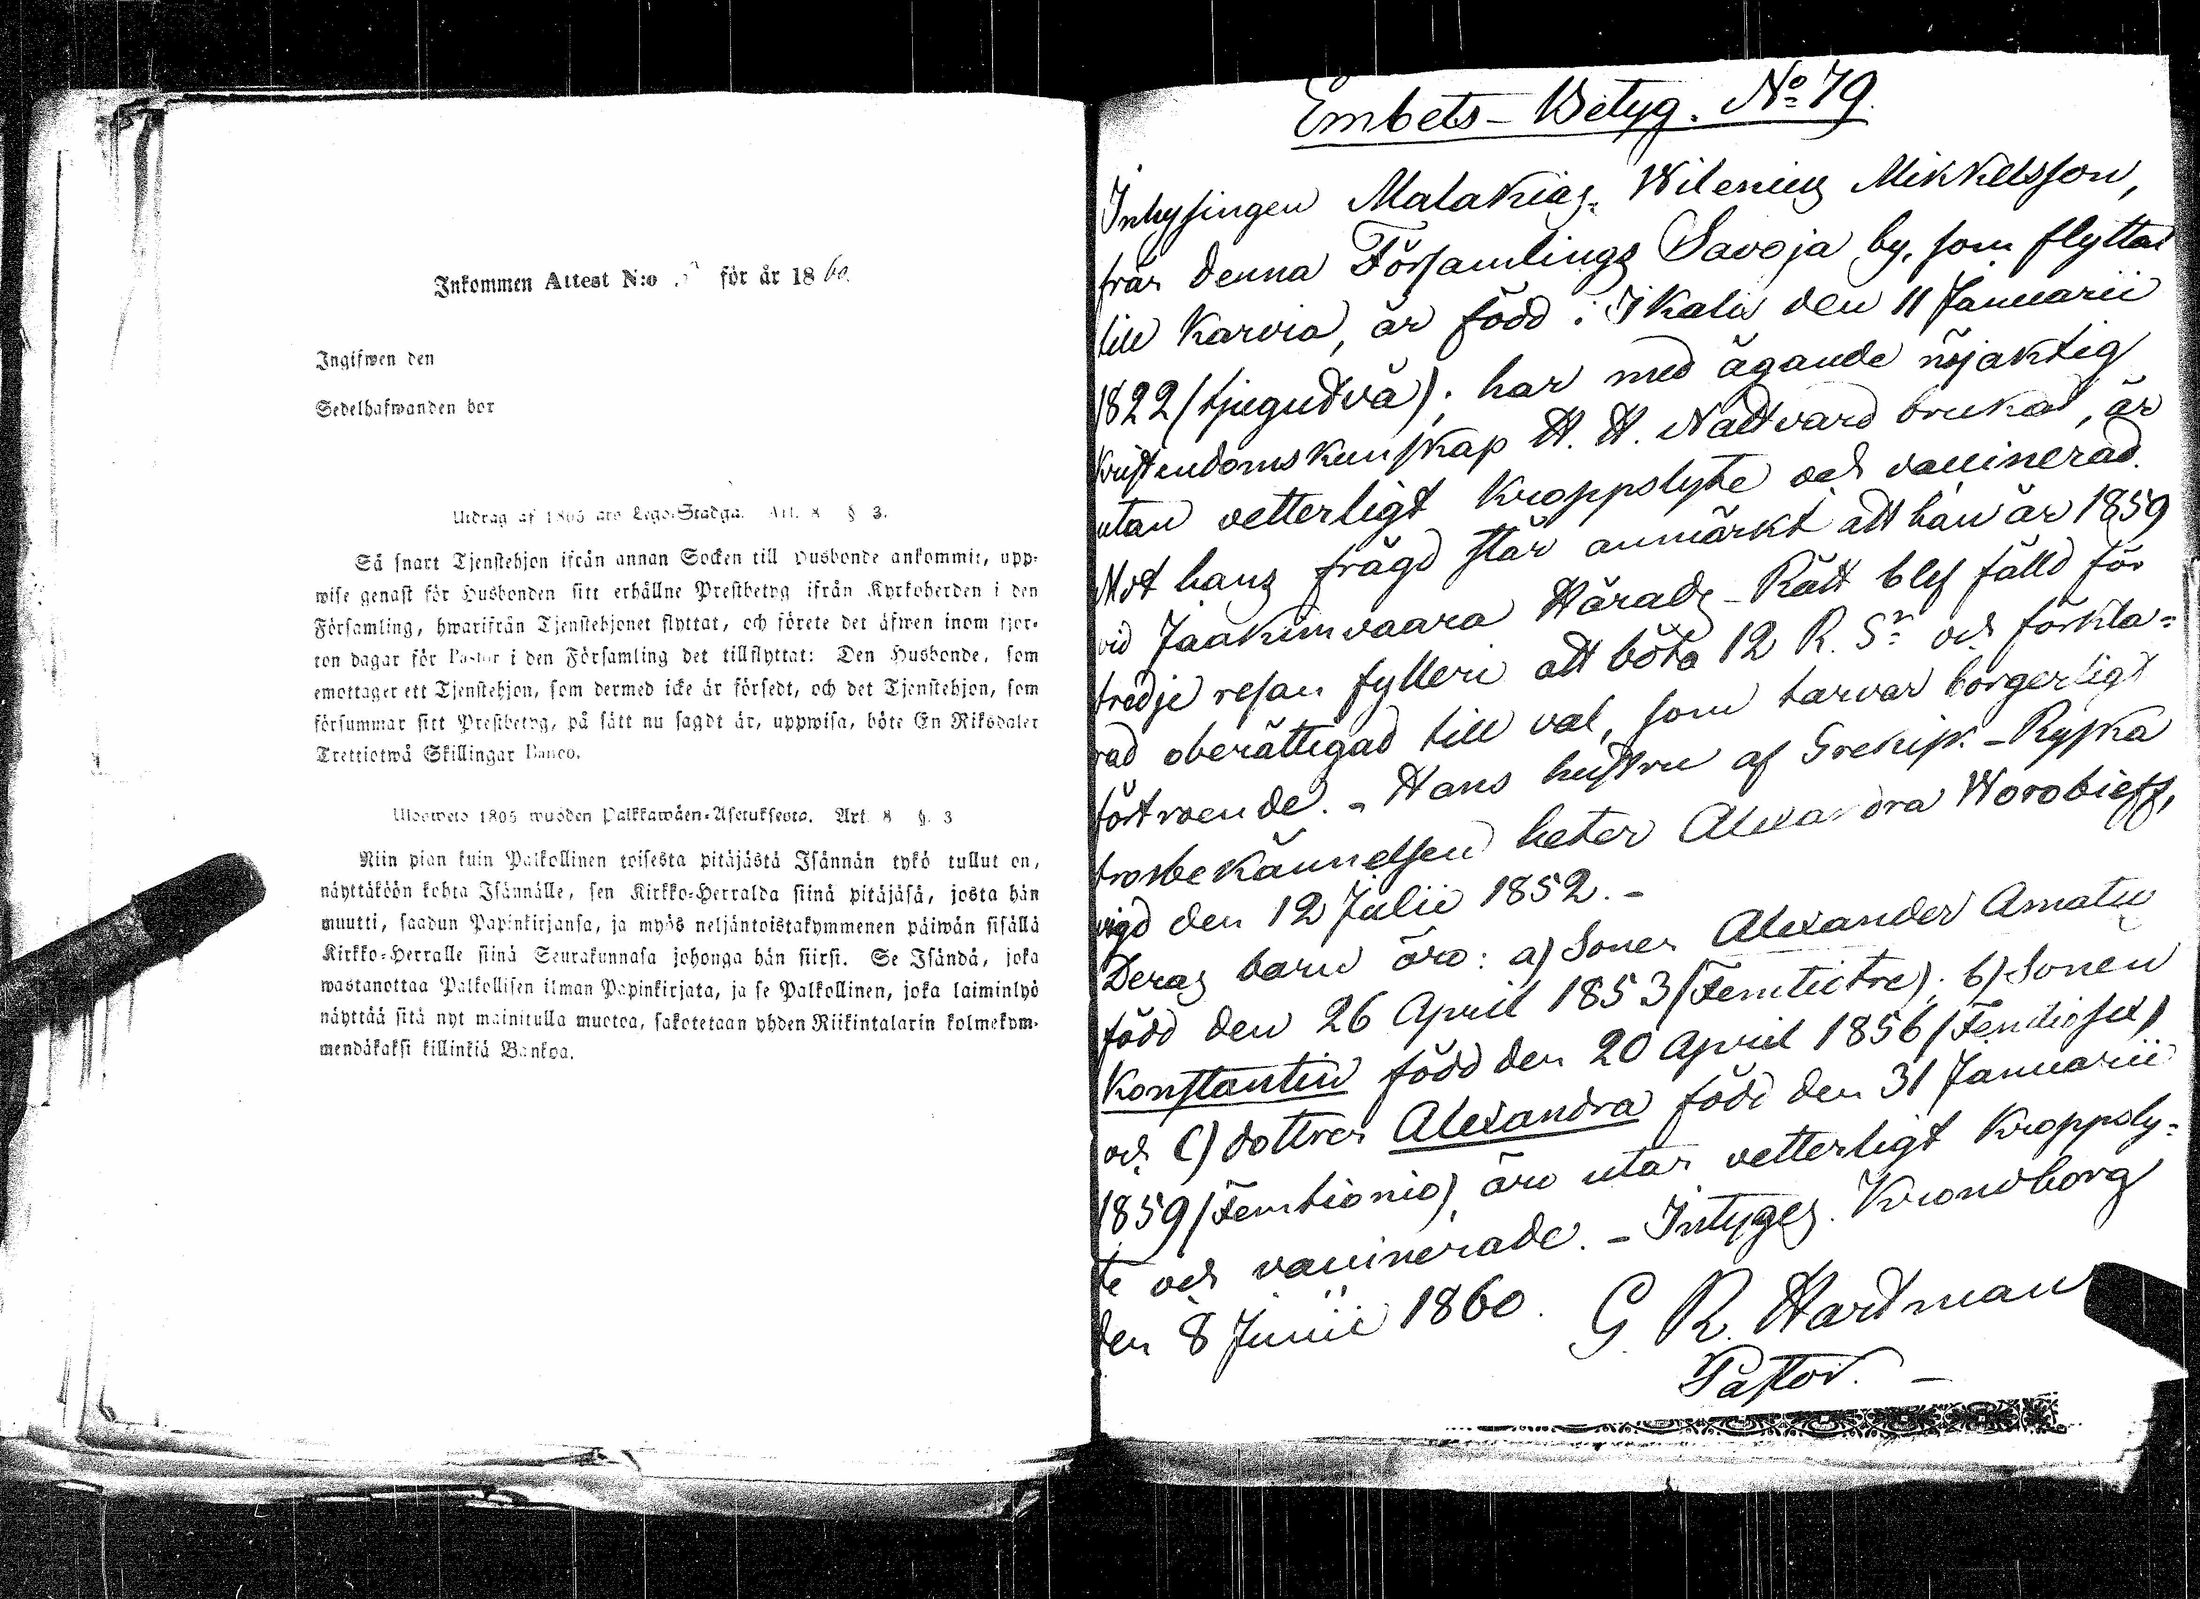 Inkommen Attest N:o för år 1860.
Ingifwen den
Sedelhafwanden bor
Utdrag af 1805 års Lego-Stadga. Art. 8 § 3.
Så snart Tjenstehjon ifrån annan Socken till Husbonde ankommit, upp-
wise genast för Husbonden sitt erhållne Prestbetyg ifrån Kyrkoherden i den
Församling, hwarifrån Tjenstehjonet flyttat, och förete det äfwen inom fjor-
ton dagar för Pastor i den Församling det tillflyttat: Den Husbonde, som
emottager ett Tjenstehjon, som dermed icke är försedt, och det Tjenstehjon, som
försummar sitt Prestbetyg, på sätt nu sagdt är, uppwisa, böte En Riksdaler
Trettiotwå Skillingar Banco.
Ulosweto 1805 wuoden Palkkawäen-Asetuksesta. Art. 8 §. 3
Niin pian kuin Palkollinen toisesta pitäjästä Isännän tykö tullut on,
näyttäköön kohta Isännälle, sen Kirkko-Herralda siinä pitäjäsä, josta hän
muutti, saadun Papinkirjansa, ja myös neljäntoistakymmenen päiwän sisällä
Kirkko-Herralle siinä Seurakunnasa johonga hän siirsi. Se Isändä, joka
wastanottaa Palkollisen ilman Papinkirjata, ja se Palkollinen, joka laiminlyö
näyttää sitä nyt mainitulla muotoa, sakotetaan yhden Riikintalarin kolmekym-
mendäkaksi killinkiä Bankoa.
Embets-Betyg. No 79.
Inhysingen Malakias Wilenius Mikkelsson,
från denna Församlings Savoja by, som flyttar
till Karvia, är född i Ikalis den 11 Januarii
1822 (tjugudvå); har med ägande nöjaktig
kristendomskunskap H. H. Nattvard brukat, är
utan vetterligt kroppslyte och vaccinerad.
Mot hans frägd står anmärkt att han år 1859
vid Jaakimvaara Härads-Rätt blef fälld för
tredje resan fylleri att böta 12 R. Sr och förkla=
rad oberättigad till val, som tarvar borgerligt
förtroende. - Hans hustru af Grekisk-Ryska
trosbekännelsen heter Alexandra Worobieff,
vigd den 12 Julii 1852. -
Deras barn äro: a) Sonen Alexander Amatu
född den 26 April 1853 (Femtiotre); b) Sonen
Konstantin född den 20 April 1856 (Femtiosex)
och C) dottren Alexandra född den 31 Januarii
1859 (Femtionio), äro utan vetterligt kroppsly=
te och vaccinerade. - Intygas. Kronoborg
den 8 Junii 1860. G. R. Hartman
Pastor. -